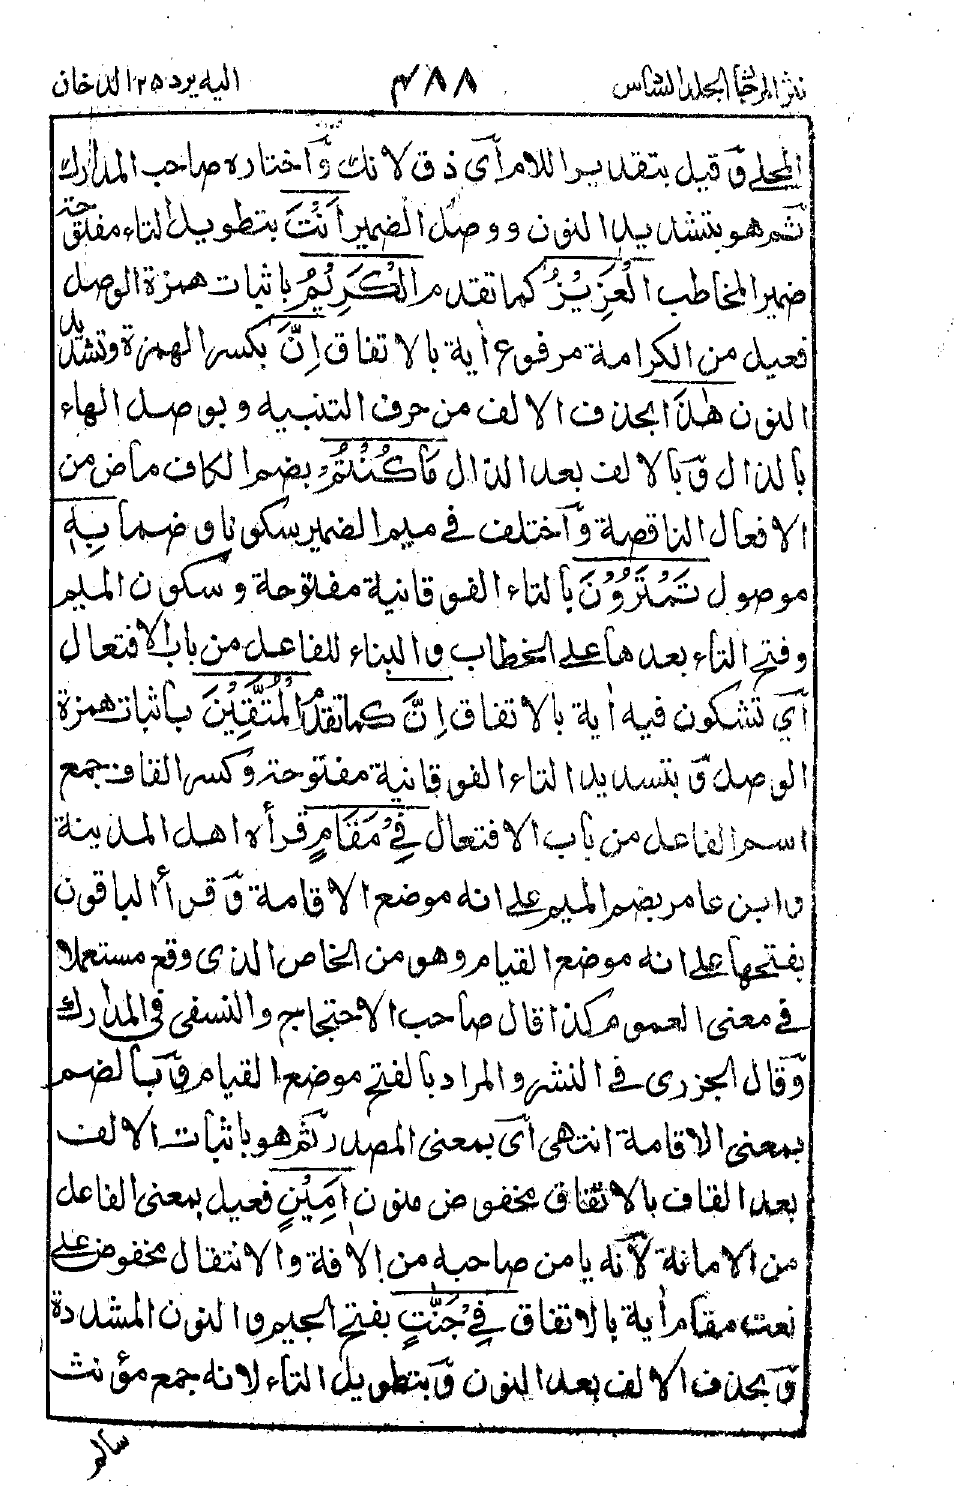 نثر المرجان المجلد السادس ٤٨٨ اليه يرد ٢٥ الدخان
المحلي وقيل بتقدير اللام أي ذق لانك واختاره صاحب المدارك
ثم هو بتشديد النون ووصل الضمير أَنْتَ بتطويل التاء مفتوحة
ضمير المخاطب الْعَزِيْزُ كما تقدم الْكَرِيْمُ باثبات همزة الوصل
فعيل من الكرامة مرفوع أية بالاتفاق اِنَّ بكسر الهمزة وتشديد
النون هٰذَا بحذف الالف من حرف التنبيه وبوصل الهاء
بالذال وبالالف بعد الذال مَا كُنْتُمْ بضم الكاف ماض من
الافعال الناقصة واختلف في ميم الضمير سكونا وضما بِهٖ
موصول تَمْتَرُوْنَ بالتاء الفوقانية مفتوحة وسكون الميم
وفتح التاء بعدها على الخطاب والبناء للفاعل من باب الافتعال
أي تشكون فيه أية بالاتفاق اِنَّ كما تقدم الْمُتَّقِيْنَ باثبات همزة
الوصل وبتشديد التاء الفوقانية مفتوحة وكسر القاف جمع
اسم الفاعل من باب الافتعال فِيْ مَقَامٍ قرأه اهل المدينة
وابن عامر بضم الميم على انه موضع الاقامة وقرأ الباقون
بفتحها على انه موضع القيام وهو من الخاص الذي وقع مستعملا
في معنى العموم كذا قال صاحب الاحتجاج والنسفي في المدارك
وقال الجزري في النشر والمراد بالفتح موضع القيام وبالضم
بمعنى الاقامة انتهى أي بمعنى المصدر ثم هو باثبات الالف
بعد القاف بالاتفاق مخفوض منون اَمِيْنٍ فعيل بمعنى الفاعل
من الامانة لانه يامن صاحبه من الأفة والانتقال مخفوض على
نعت مقام أية بالاتفاق فِيْ جَنّٰتٍ بفتح الجيم والنون المشددة
وبحذف الالف بعد النون وبتطويل التاء لانه جمع مؤنث
سالم